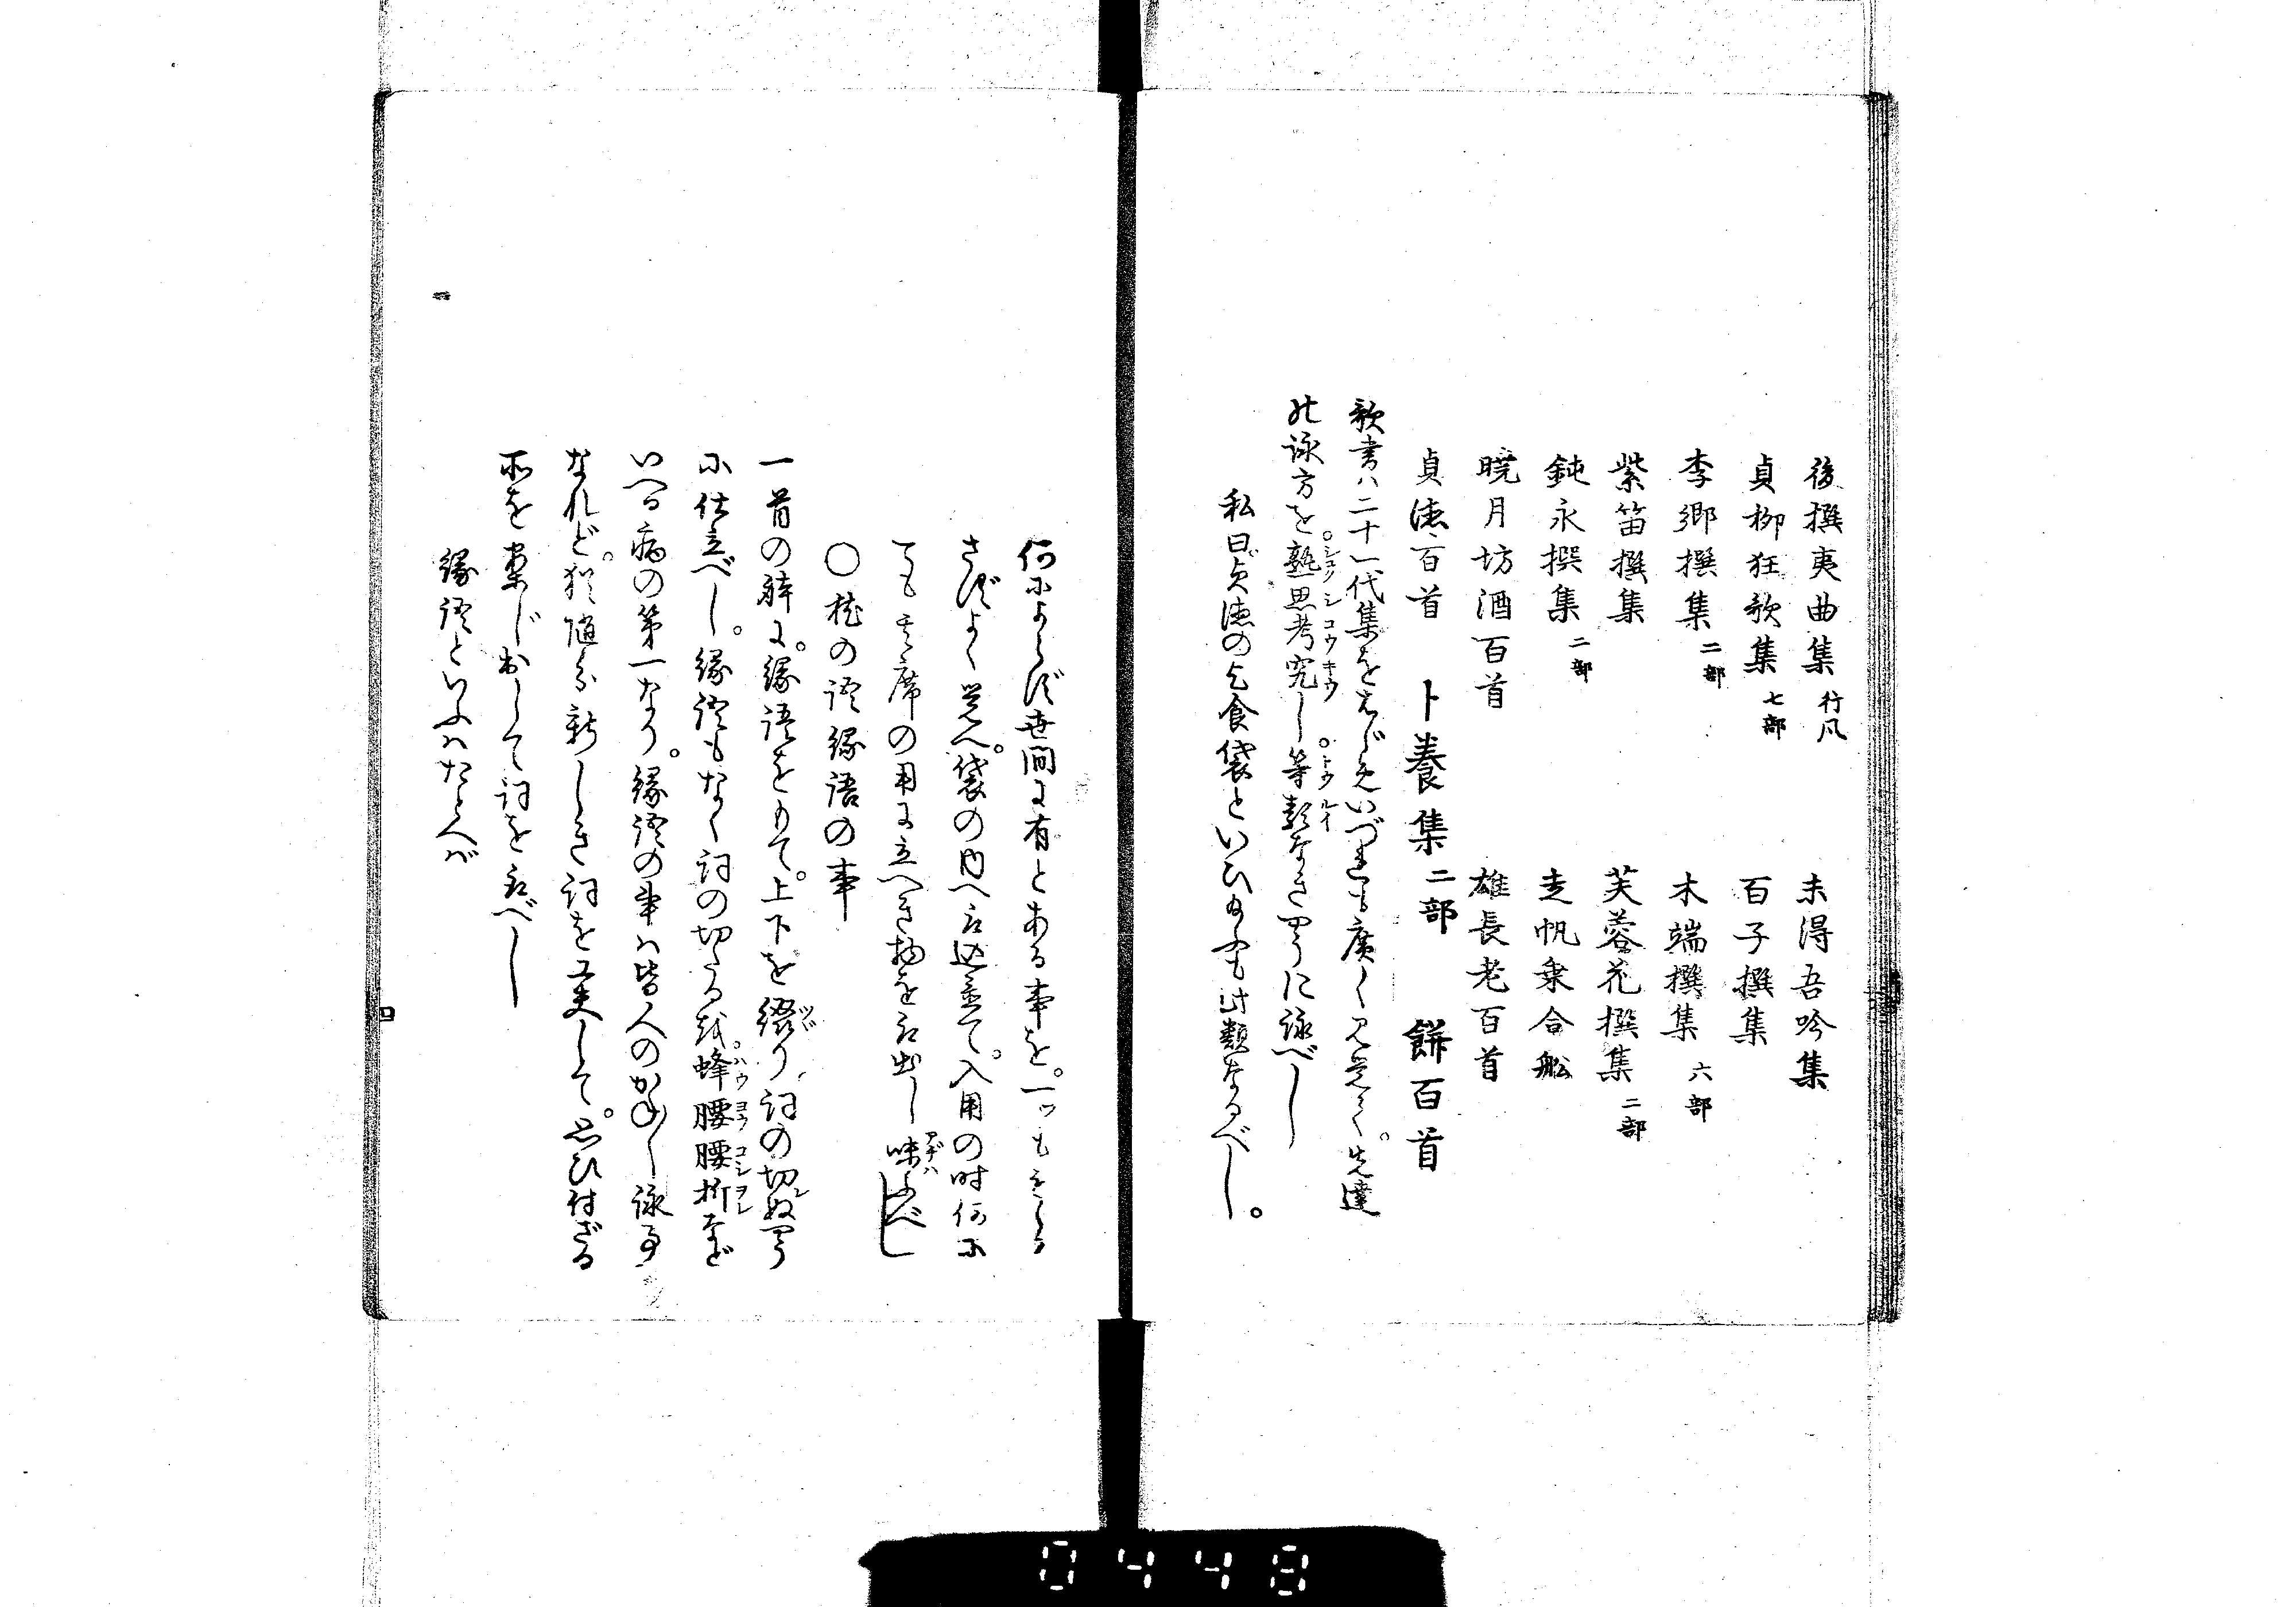 後撰夷曲集 行風 未得吾吟集
貞柳狂歌集 七部 百子撰集
李郷撰集 二部 木端撰集 六部
紫笛撰集 芙蓉花撰集 二部
鈍永撰集 二部 走帆乗合船
暁月坊酒百首 雄長老百首
貞徳百首 卜養集 二部 餅百首
歌書ハ二十一代集をはじめいづれも廣く見覚て。先達
の詠方を。熟思考究し。等類なきやうに詠べし
私曰貞徳の乞食袋といひしも此類なるべし。
何によらず世間に有とある事を。一ッももらさず
さずよく覚へ。袋の内へ入込置て。入用の時何に
ても其席の用に立べき物を取出し味ふべし
〇枕の詞縁語の事
一首の躰に。縁語をもて。上下を綴り詞の切ぬやう
に仕立べし。縁語もなく詞の切たるを。蜂腰腰折など
いへる病の第一なり。縁語の事ハ皆人のかねて詠事
なれど。猶随分新しき詞を工夫して。思ひ付ざる
所を案じ出して詞を取べし
縁語といふハたとへバ
四
0448